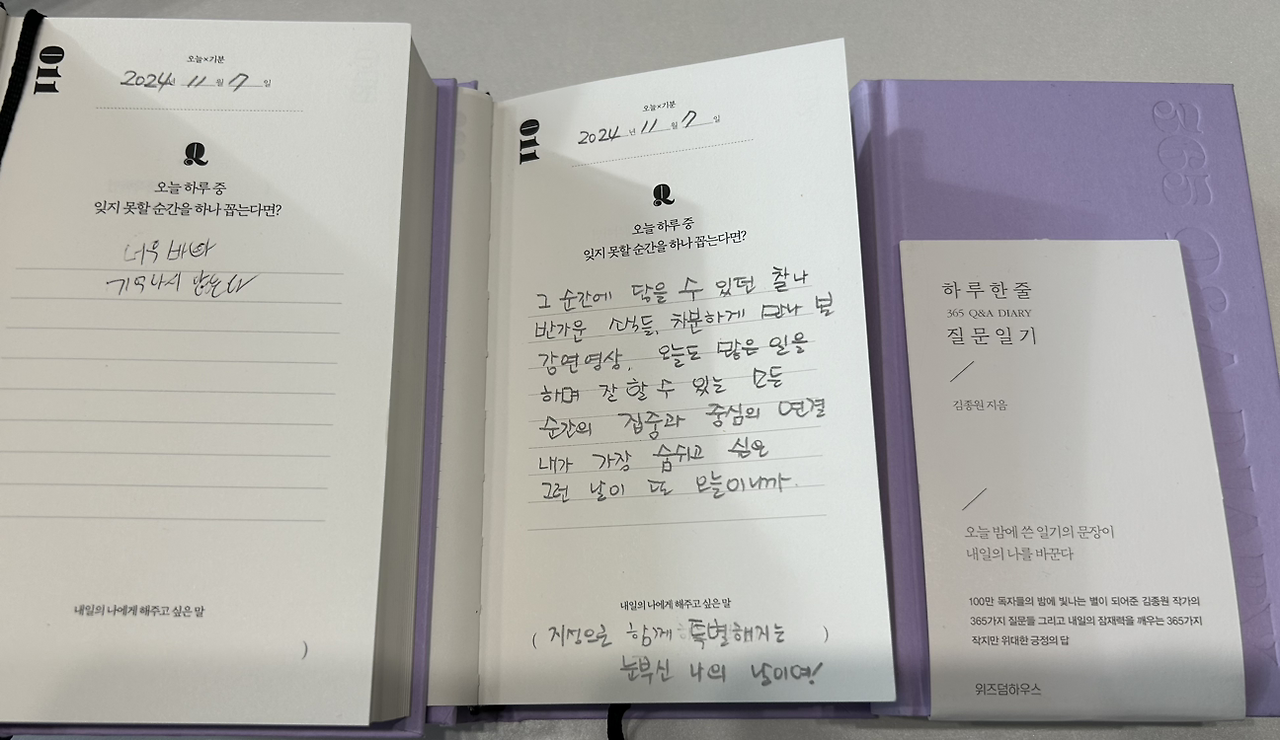 011
오늘×기분
2024년 11월 7일
Q
오늘 하루 중
잊지 못할 순간을 하나 꼽는다면?
너무 바빠
기억나지 않는다
내일의 나에게 해주고 싶은 말
)
011
오늘×기분
2024년 11월 7일
Q
오늘 하루 중
잊지 못할 순간을 하나 꼽는다면?
그 순간에 닿을 수 있던 찰나
반가운 소식들, 차분하게 만나 본
강연영상, 오늘도 많은 일을
하며 잘 할 수 있는 모든
순간의 집중과 중심의 연결
내가 가장 숨쉬고 싶은
그런 날이 또 오늘이니까.
내일의 나에게 해주고 싶은 말
( 지성으로 함께 특별해지는 )
눈부신 나의 날이여!
365 Q&A DIARY
하루 한 줄
365 Q&A DIARY
질문 일기
김종원 지음
오늘 밤에 쓴 일기의 문장이
내일의 나를 바꾼다
100만 독자들의 밤에 빛나는 별이 되어준 김종원 작가의
365가지 질문들 그리고 내일의 잠재력을 깨우는 365가지
작지만 위대한 긍정의 답
위즈덤하우스